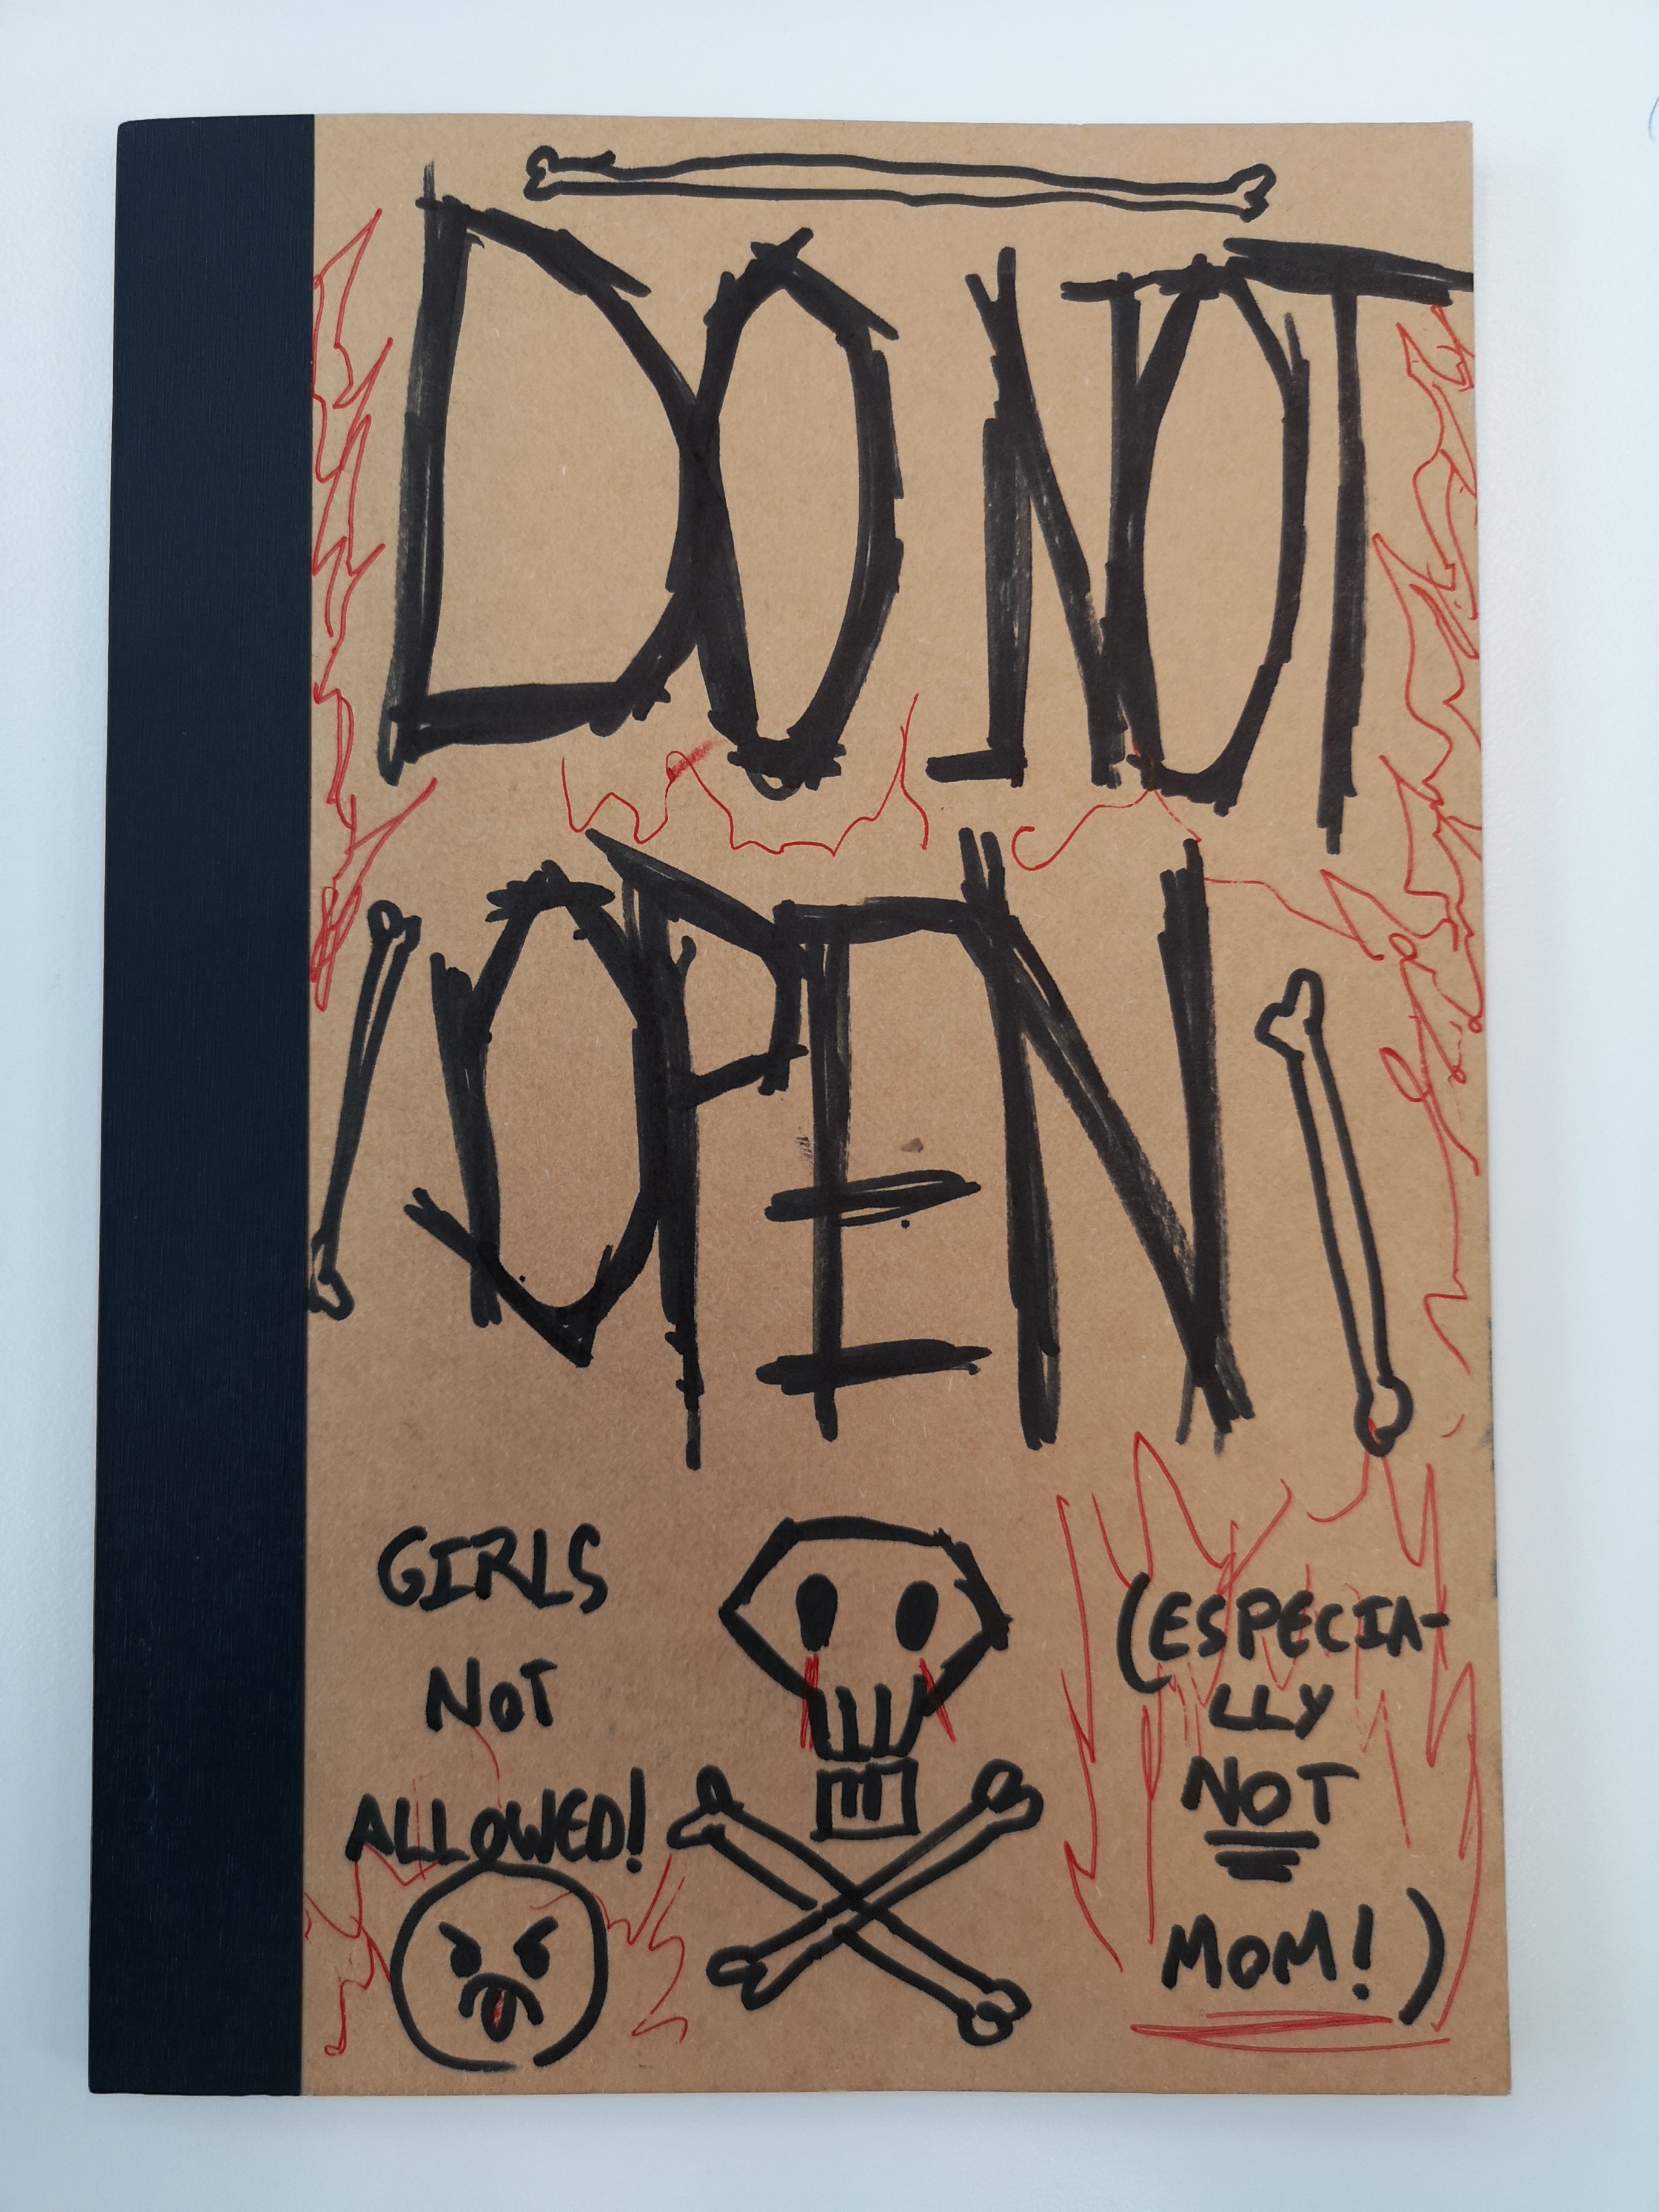 DO NOT
OPEN
GIRLS
NOT
ALLOWED!
(ESPECIA-
LLY
NOT
MOM!)